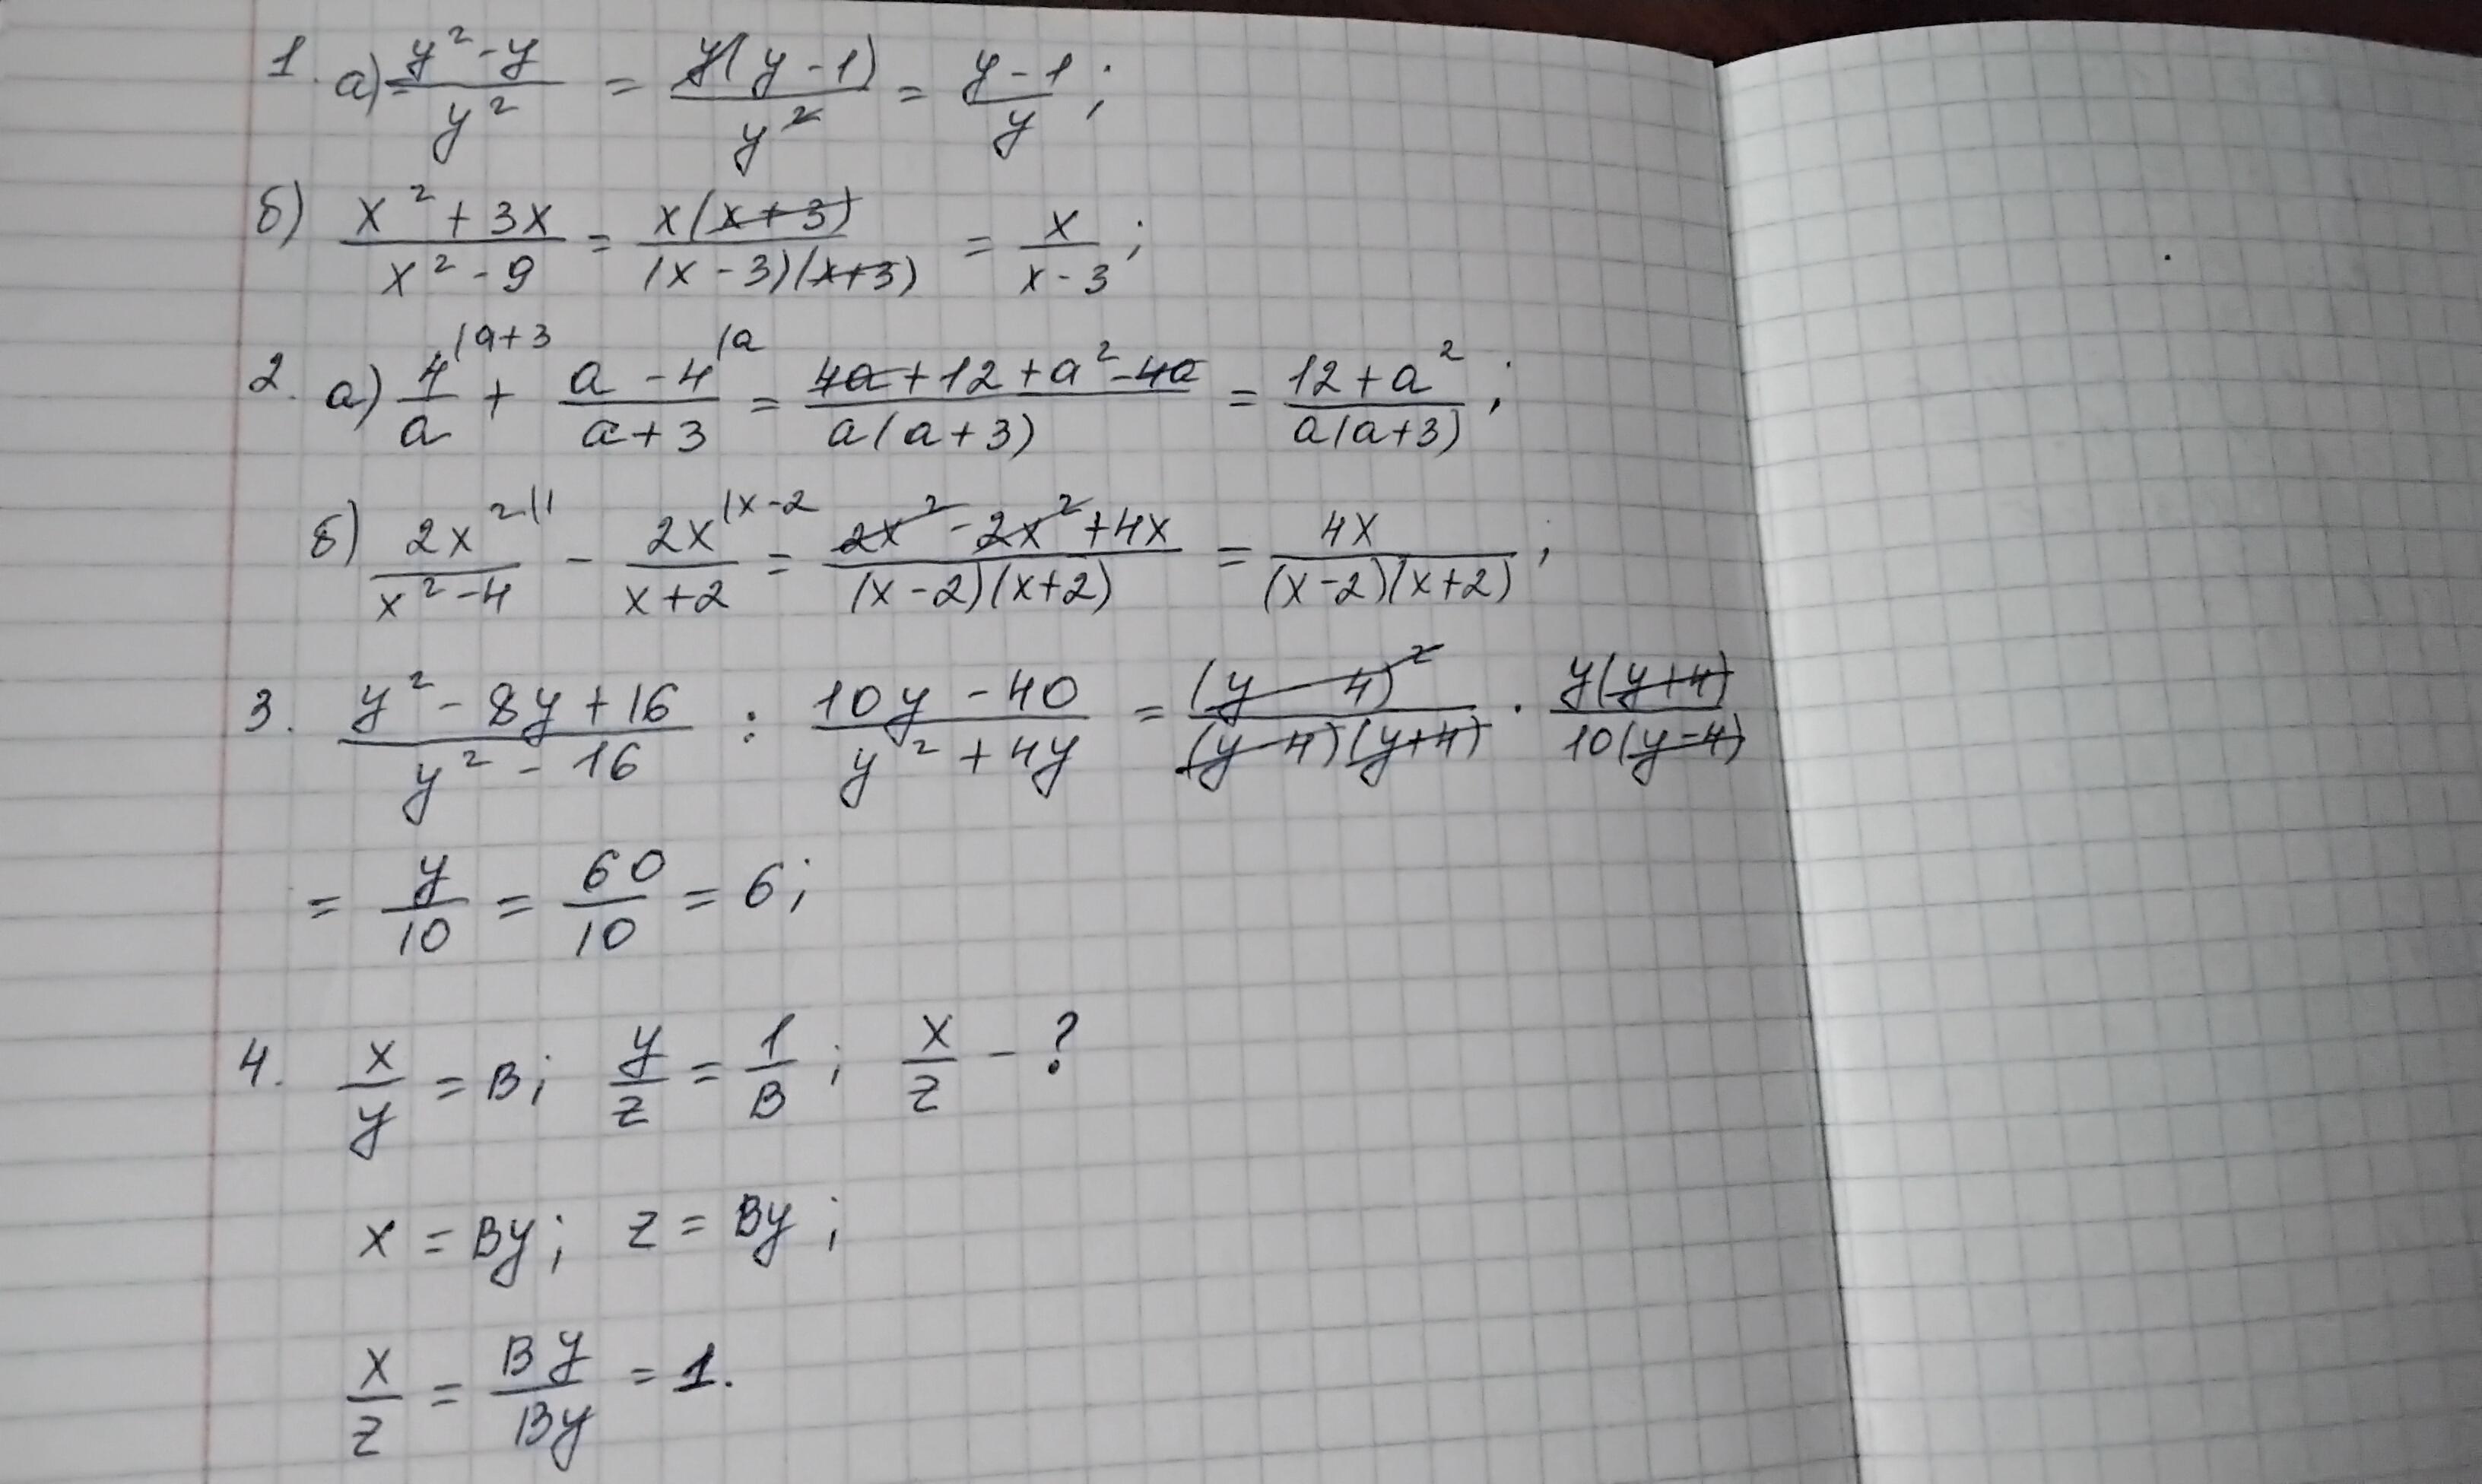 1. а) (y² - y)/y² = y(y - 1)/y² = (y - 1)/y;
б) (x² + 3x)/(x² - 9) = x(x + 3)/((x - 3)(x + 3)) = x/(x - 3);
2. а) 4/a |a+3 + (a - 4)/(a + 3) |a = (4a + 12 + a² - 4a)/(a(a + 3)) = (12 + a²)/(a(a + 3));
б) 2x²/(x² - 4) |1 - 2x/(x + 2) |x-2 = (2x² - 2x² + 4x)/((x - 2)(x + 2)) = 4x/((x - 2)(x + 2));
3. (y² - 8y + 16)/(y² - 16) : (10y - 40)/(y² + 4y) = (y - 4)²/((y - 4)(y + 4)) · y(y + 4)/(10(y - 4))
= y/10 = 60/10 = 6;
4. x/y = в; y/z = 1/в; x/z - ?
x = вy; z = вy;
x/z = вy/вy = 1.